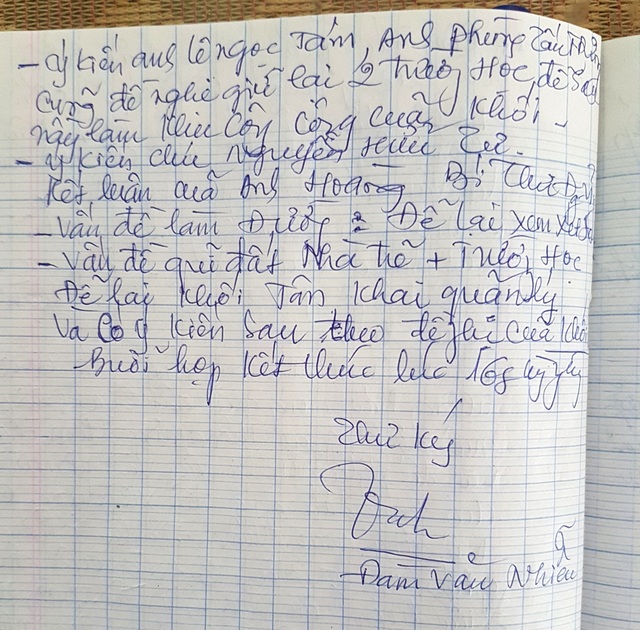 - ý kiến anh lê ngọc Tám, Anh phùng tấn
Cũng đề nghị giữ lại 2 trường Học, để sau
này làm khu công cộng của khối.
- ý kiến chú Nguyễn Hữu Tư.
Kết luận của Anh Hoàng Bí Thư
- Vấn đề làm Đường: Để lại xem xét
- Vấn đề quỹ đất Nhà trẻ + Trường Học
Để lại khối Tân Khai quản lý
Và Có ý kiến sau theo đề nghị của khối
Buổi họp kết thúc lúc 16g
Thư ký
Đàm Văn Nhiên